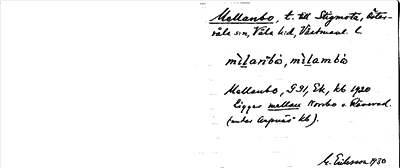 Mellanbo, t. till Stigmota, Öster-
våla sn, Våla hd, Västmanl. l.
mìlanbò, mìlambò
Mellanbo, G 31, Ek, kb 1920
ligger mellan Norrbo o.
(under kb).
G. Eriksson 1930